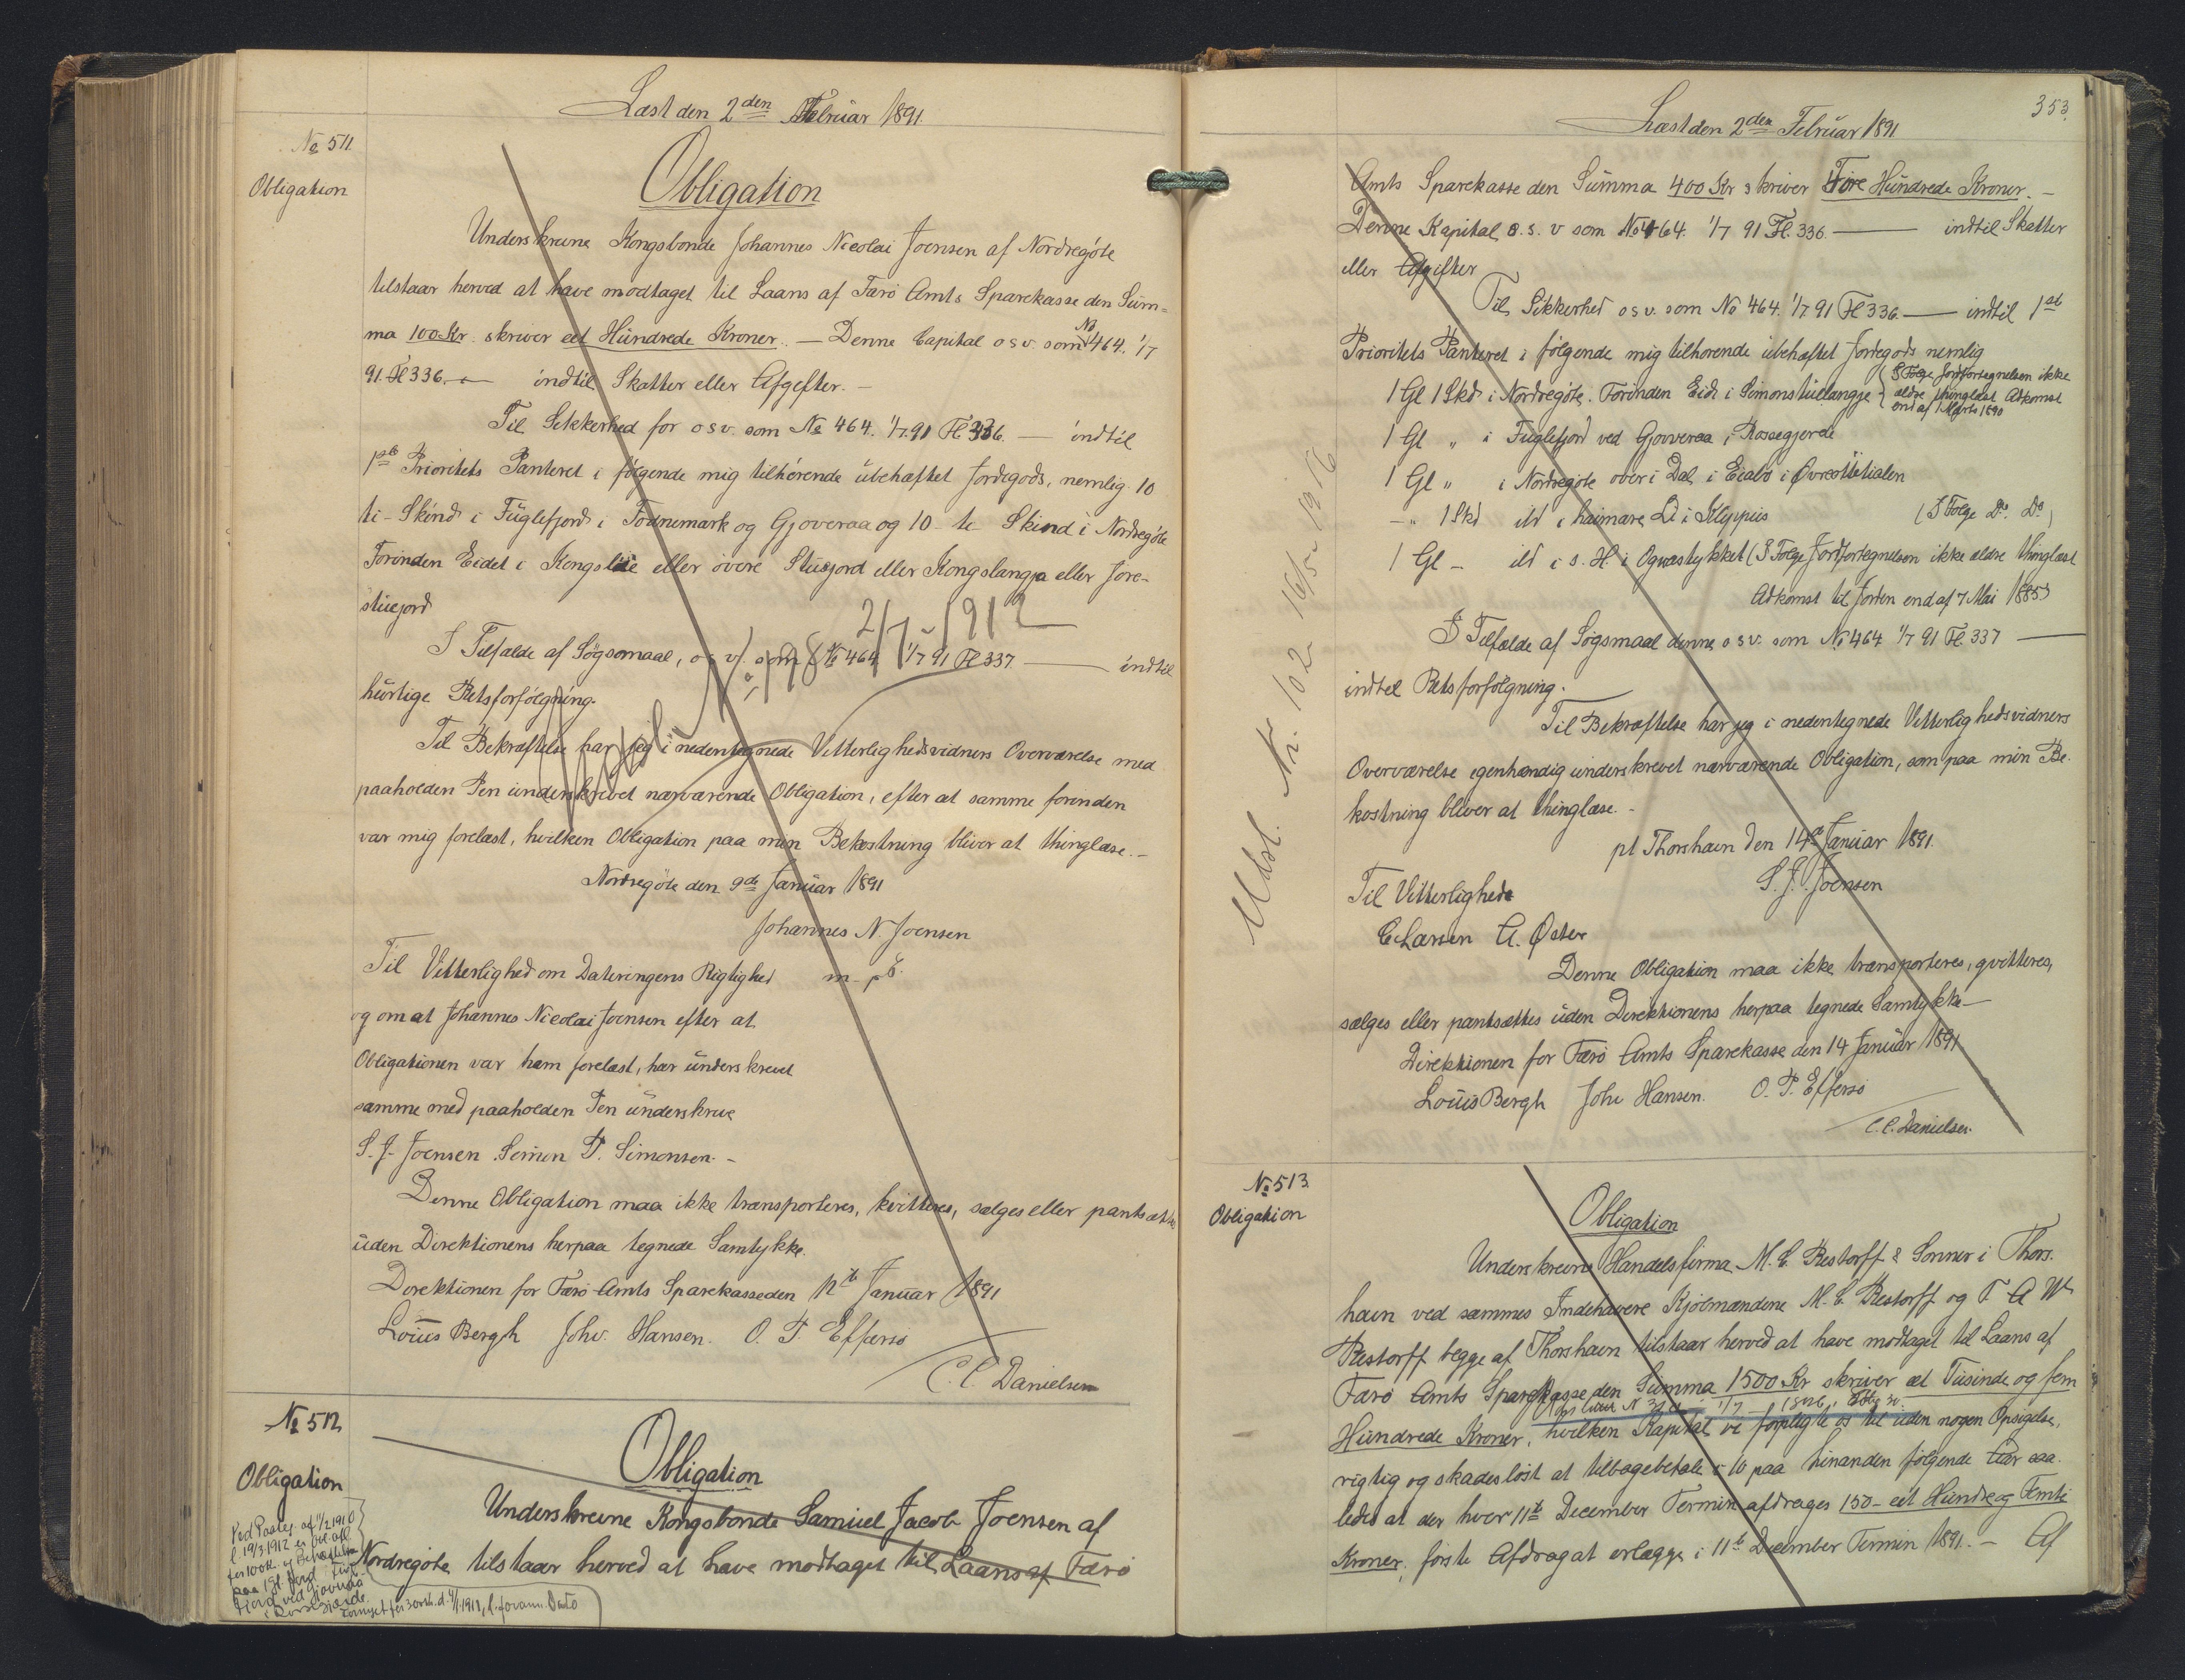 Læst den 2den Februar 1891
No 511.
Obligation
Obligation
Underskrevne Kongsbonde Johannes Nicolai Joensen af Nordregöte
tilstaar herved at have modtaget til Laans af Færö Amts Sparekasse den Sum-
ma 100 Kr. skriver eet Hundrede Kroner. — Denne Capital o s v. som No 464. 1/7
91. Fl 336. — indtil Skatter eller Afgifter. —
Til Sikkerhed for o s v. som No 464. 1/7. 91 Fl. 336. — indtil
1ste Prioritets Panteret i fölgende mig tilhörende übehæftet Jordegods, nemlig 10
ti - Skind i Fuglefjord i Toünemark og Gjoveraa og 10 - ti Skind i Nordregöte
Forinden Eidet i Kongslie eller övere Stüejord eller Kongslangja eller Fore-
stüejord
I Tilfælde af Sögsmaal, o s v. som No 464 1/7 91 Fl 337. — indtil
hurtige Retsforfölgning.
2/7 - 1912
Til Bekræftelse har jeg i nedentegnede Vitterlighedsvidners Overværelse med
paaholden Pen underskrevet nærværende Obligation, efter at samme forinden
var mig forelæst, hvilken Obligation paa min Bekostning bliver at thinglæse. —
Nordregöte den 9de Januar 1891
Johannes N. Joensen
Til Vitterlighed om Dateringens Rigtighed m. p. P.
og om at Johannes Nicolai Joensen efter at
Obligationen var ham forelæst, har underskrevet
samme med paaholden Pen underskrive
S. J. Joensen Simun P. Simonsen. —
Denne Obligation maa ikke transporteres, kvitteres, sælges eller pantsættes
uden Direktionens herpaa tegnede Samtykke.
Direktionen for Færö Amts Sparekasse den 12te Januar 1891
Louis Bergh Johs. Hansen. O. P. Effersö
C. C. Danielsen
No 512
Obligation
Obligation
Underskrevne Kongsbonde Samuel Jacob Joensen af
Nordregöte tilstaar herved at have modtaget til Laans af Færö
Ved Paateg. af 11/2 1910
l. 19/3 1912 er Obl. afl.
for 100 Kr. og Behæftelse
paa 1 Gl. Jord i Fugle-
fjord ved Gjoveraa
i Rossegjærde.
353.
Læst den 2den Februar 1891
Amts Sparekasse den Summa 400 Kr skriver Fire Hundrede Kroner. —
Denne Kapital o. s. v som No 464. 1/7 91 Fl. 336. — indtil Skatter
eller Afgifter
Til Sikkerhed o s v. som No 464. 1/7 91 Fl 336. — indtil 1ste
Prioritets Panteret i fölgende mig tilhorende übehæftet Jordegods nemlig
1 Gl 1 Skd i Nordregöte. Forinden Eid i Simonstuelangje (I Fölge Jordfortegnelsen ikke
ældre thinglæst Adkomst
end af 1 Marts 1890
1 Gl " i Fuglefjord ved Gjoveraa i Rossegjerde
1 Gl " i Nordregöte over i Dal i Eiabö i
— " 1 Skd ibd i haimare Li i Klyppus (I Fölge Do. Do)
1 Gl — ibd i s. H. i Ognastykket (I Fölge Jordfortegnelsen ikke ældre thinglæst
Adkomst til Jorden end af 7 Mai 1885)
I Tilfælde af Sögsmaal denne o s v. som No 464 1/7 91 Fl. 337 —
indtil Retsforfölgning.
Til Bekræftelse har jeg i nedentegnede Vitterlighedsvidners
Overværelse egenhændig underskrevet nærværende Obligation, som paa min Be-
kostning bliver at thinglæse. —
pt Thorshavn den 14de Januar 1891.
Til Vitterlighed S. J. Joensen
C. Larsen A. Öster
Denne Obligation maa ikke transporteres, qvitteres,
sælges eller pantsættes uden Direktionens herpaa tegnede Samtykke —
Direktionen for Færö Amts Sparekasse den 14 Januar 1891
Louis Bergh Johs Hansen. O. P. Effersö
C. C. Danielsen.
Udsl. Nr. 102 16/5 1916
No 513.
Obligation
Obligation
Underskrevne Handelsfirma M. C. Restorff & Sonner i Thors-
havn ved sammes Indehavere Kjöbmændene M. C. Restorff og T A W
Restorff begge af Thorshavn tilstaar herved at have modtaget til Laans af
Færö Amts Sparekasse den Summa 1500 Kr skriver et Tusinde og fem
Hundrede Kroner, hvilken Kapital vi forpligte os til uden nogen Opsigelse,
rigtig og skadeslöst at tilbagebetale i 10 paa hinanden fölgende Aar saa-
ledes at der hver 11te December Termin afdrages 150 - eet Hundr og Femti
Kroner, förste Afdrag at erlægge i 11te December Termin 1891. — Af